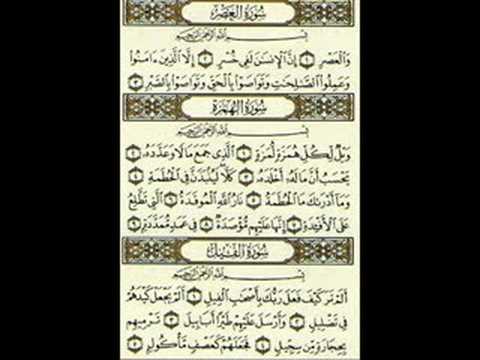 سُورَةُ العَصْرِ
بِسْمِ ٱللَّهِ ٱلرَّحْمَٰنِ ٱلرَّحِيمِ
وَٱلْعَصْرِ ١ إِنَّ ٱلْإِنسَٰنَ لَفِى خُسْرٍ ٢ إِلَّا ٱلَّذِينَ ءَامَنُوا۟
وَعَمِلُوا۟ ٱلصَّٰلِحَٰتِ وَتَوَاصَوْا۟ بِٱلْحَقِّ وَتَوَاصَوْا۟ بِٱلصَّبْرِ ٣
سُورَةُ الهُمَزَةِ
بِسْمِ ٱللَّهِ ٱلرَّحْمَٰنِ ٱلرَّحِيمِ
وَيْلٌ لِّكُلِّ هُمَزَةٍ لُّمَزَةٍ ١ ٱلَّذِى جَمَعَ مَالًا وَعَدَّدَهُۥ ٢
يَحْسَبُ أَنَّ مَالَهُۥٓ أَخْلَدَهُۥ ٣ كَلَّا لَيُنۢبَذَنَّ فِى ٱلْحُطَمَةِ ٤
وَمَآ أَدْرَىٰكَ مَا ٱلْحُطَمَةُ ٥ نَارُ ٱللَّهِ ٱلْمُوقَدَةُ ٦ ٱلَّتِى تَطَّلِعُ
عَلَى ٱلْأَفْـِٔدَةِ ٧ إِنَّهَا عَلَيْهِم مُّؤْصَدَةٌ ٨ فِى عَمَدٍ مُّمَدَّدَةٍۭ ٩
سُورَةُ الفِيلِ
بِسْمِ ٱللَّهِ ٱلرَّحْمَٰنِ ٱلرَّحِيمِ
أَلَمْ تَرَ كَيْفَ فَعَلَ رَبُّكَ بِأَصْحَٰبِ ٱلْفِيلِ ١ أَلَمْ يَجْعَلْ كَيْدَهُمْ
فِى تَضْلِيلٍ ٢ وَأَرْسَلَ عَلَيْهِمْ طَيْرًا أَبَابِيلَ ٣ تَرْمِيهِم
بِحِجَارَةٍ مِّن سِجِّيلٍ ٤ فَجَعَلَهُمْ كَعَصْفٍ مَّأْكُولٍۭ ٥